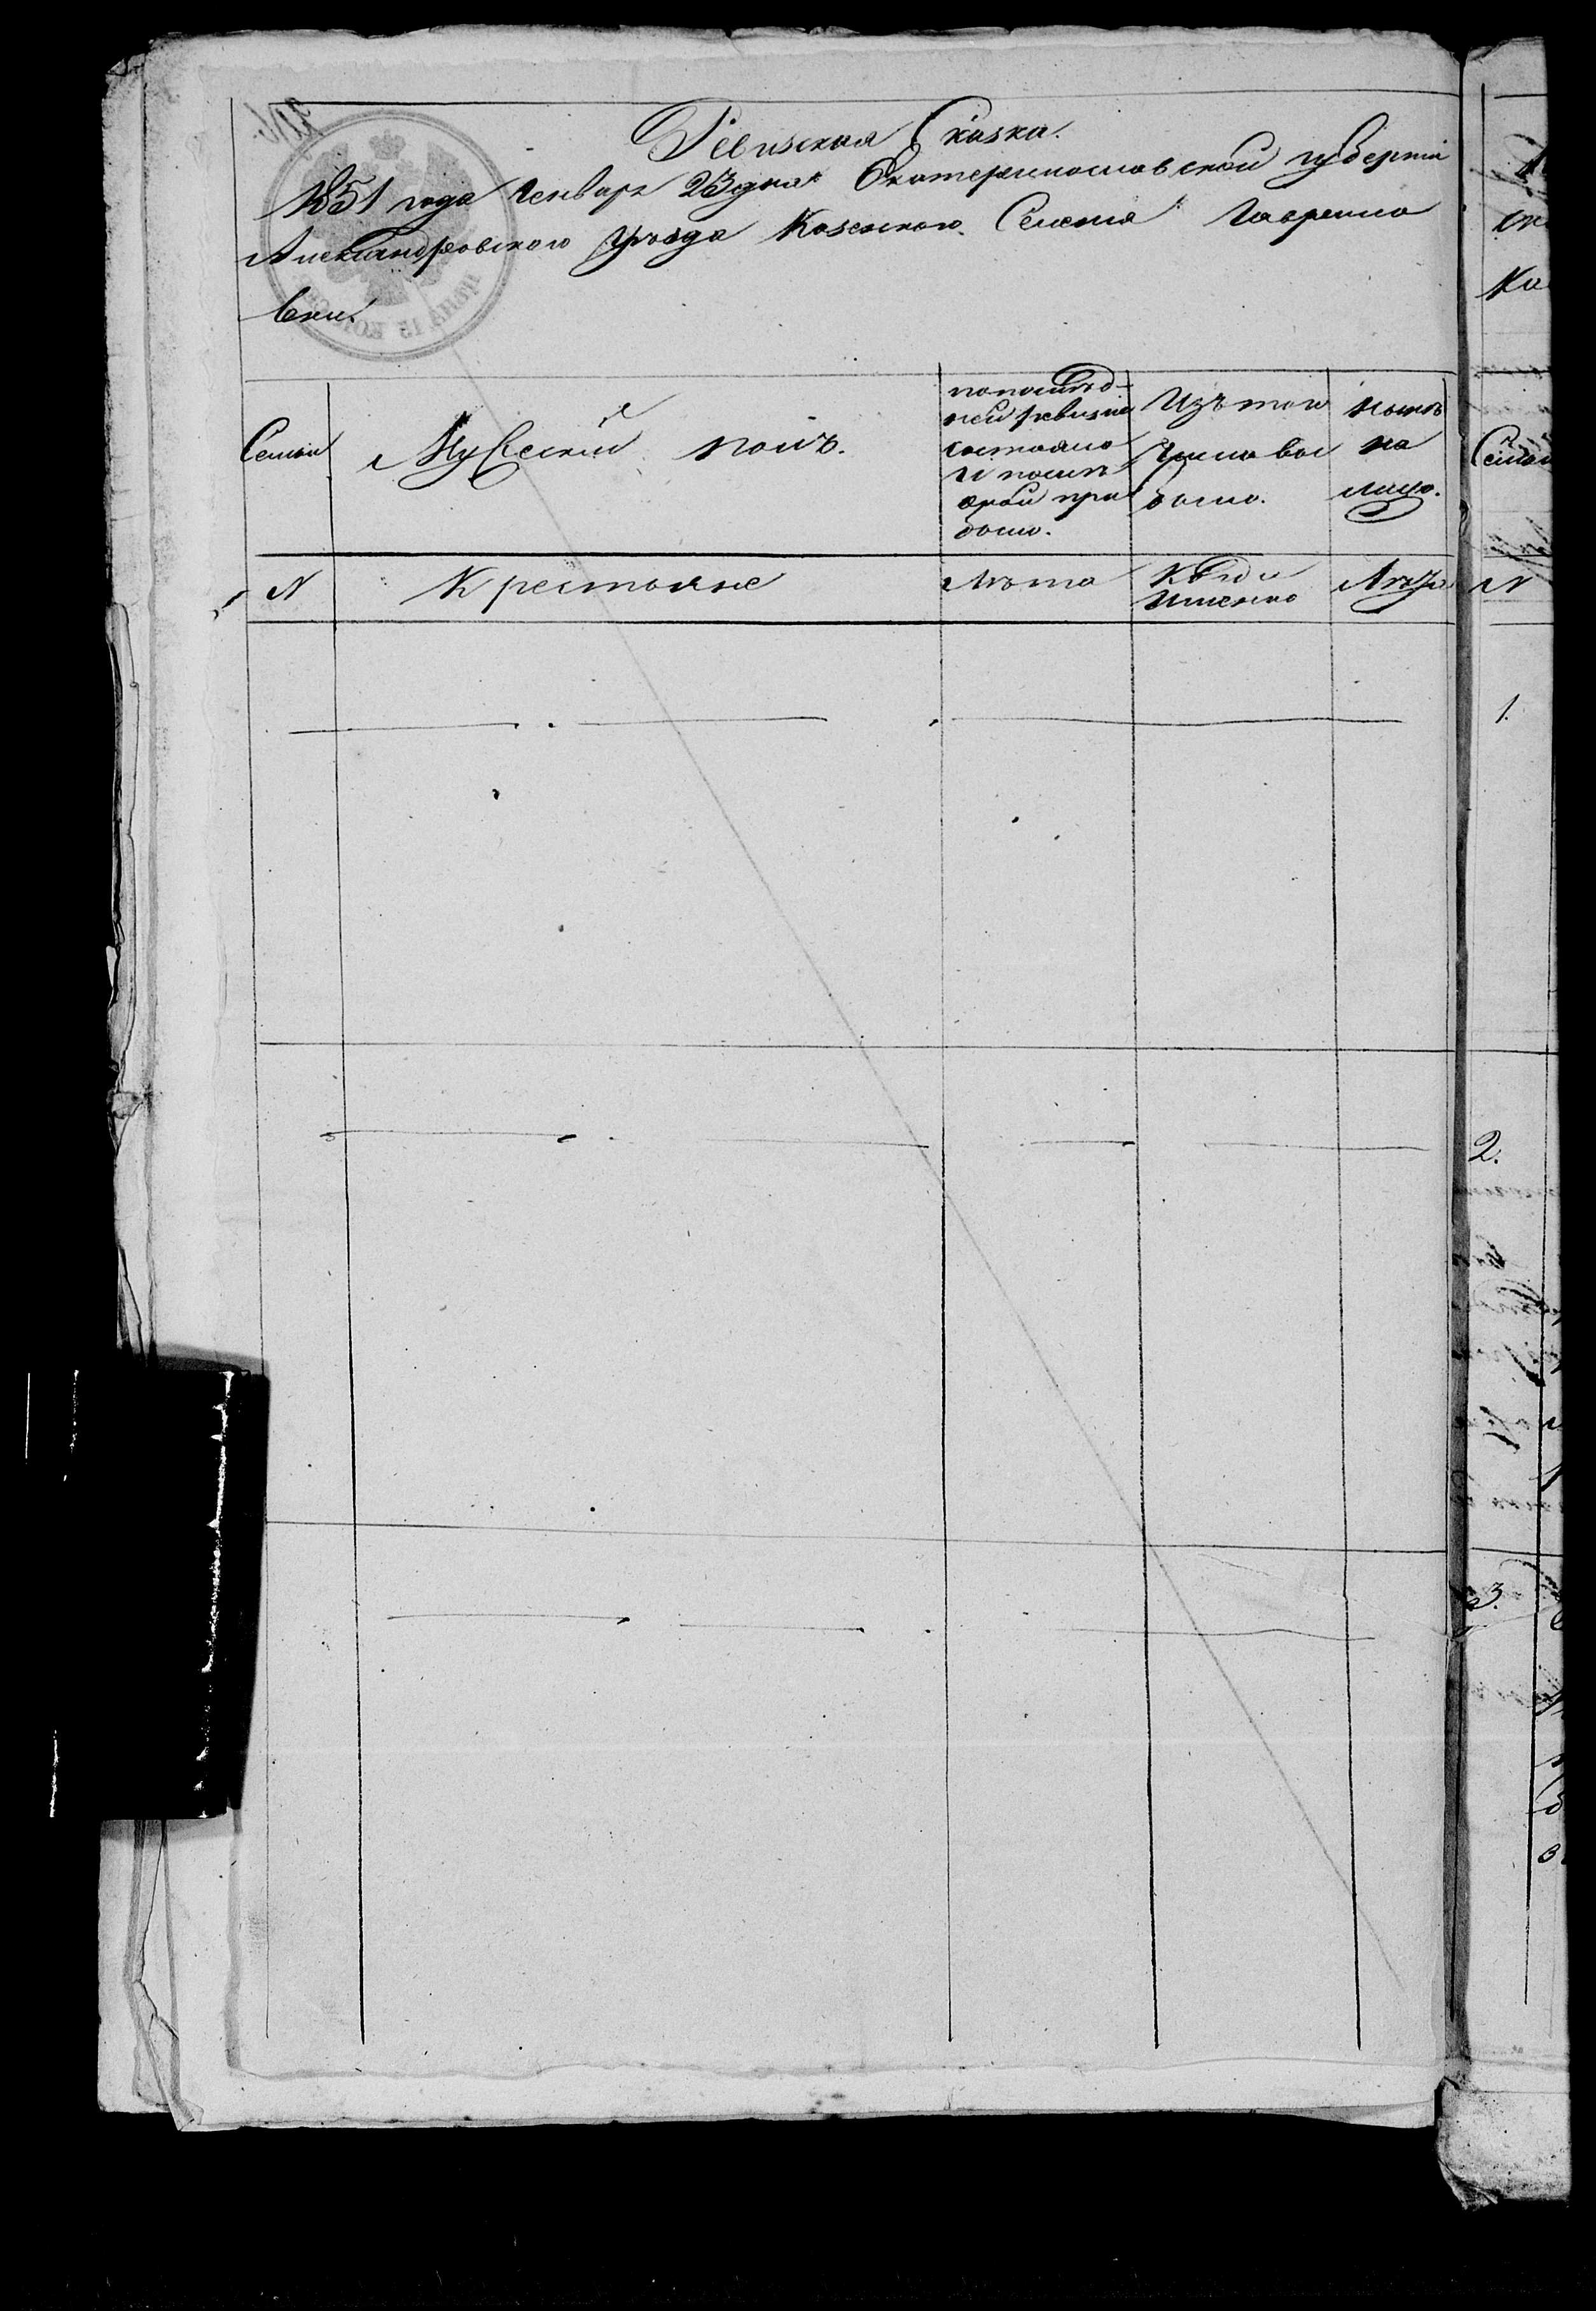 Ревизская Сказка.
1851 года Генваря 23 дня Екатеринославской губерніи
Александровского уѣзда Казенного Селенія Гаврило
вки.
Семьи
Мужескій полъ.
по послѣд-
ней ревизіи
состояло
и послѣ
оной при
было.
Изъ того
числа вы
было.
Нынѣ
на
лицо.
N
Крестьяне
Лѣта
Когда
именно
Лѣта
N
1.
2.
3.